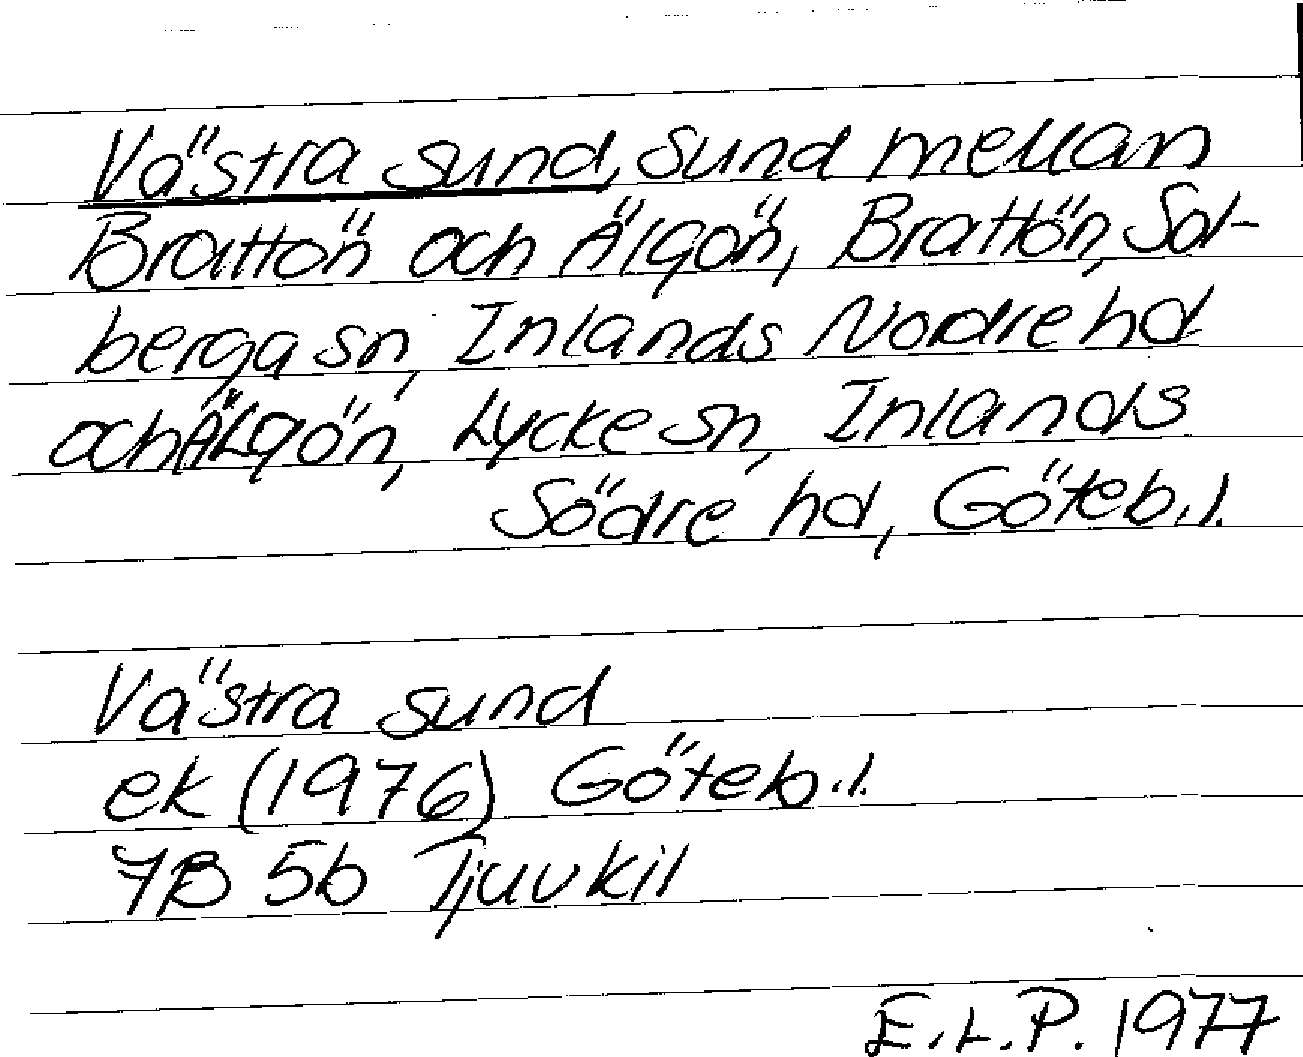 Västra sund, sund mellan
Brattön och Älgön, Brattön, Sol-
berga sn, Inlands Nordre hd
och Älgön, Lycke sn, Inlands
Södre hd, Göteb.l.
Västra sund
ek (1976) Göteb.l.
7B 5b Tjuvkil
E.L.P. 1977